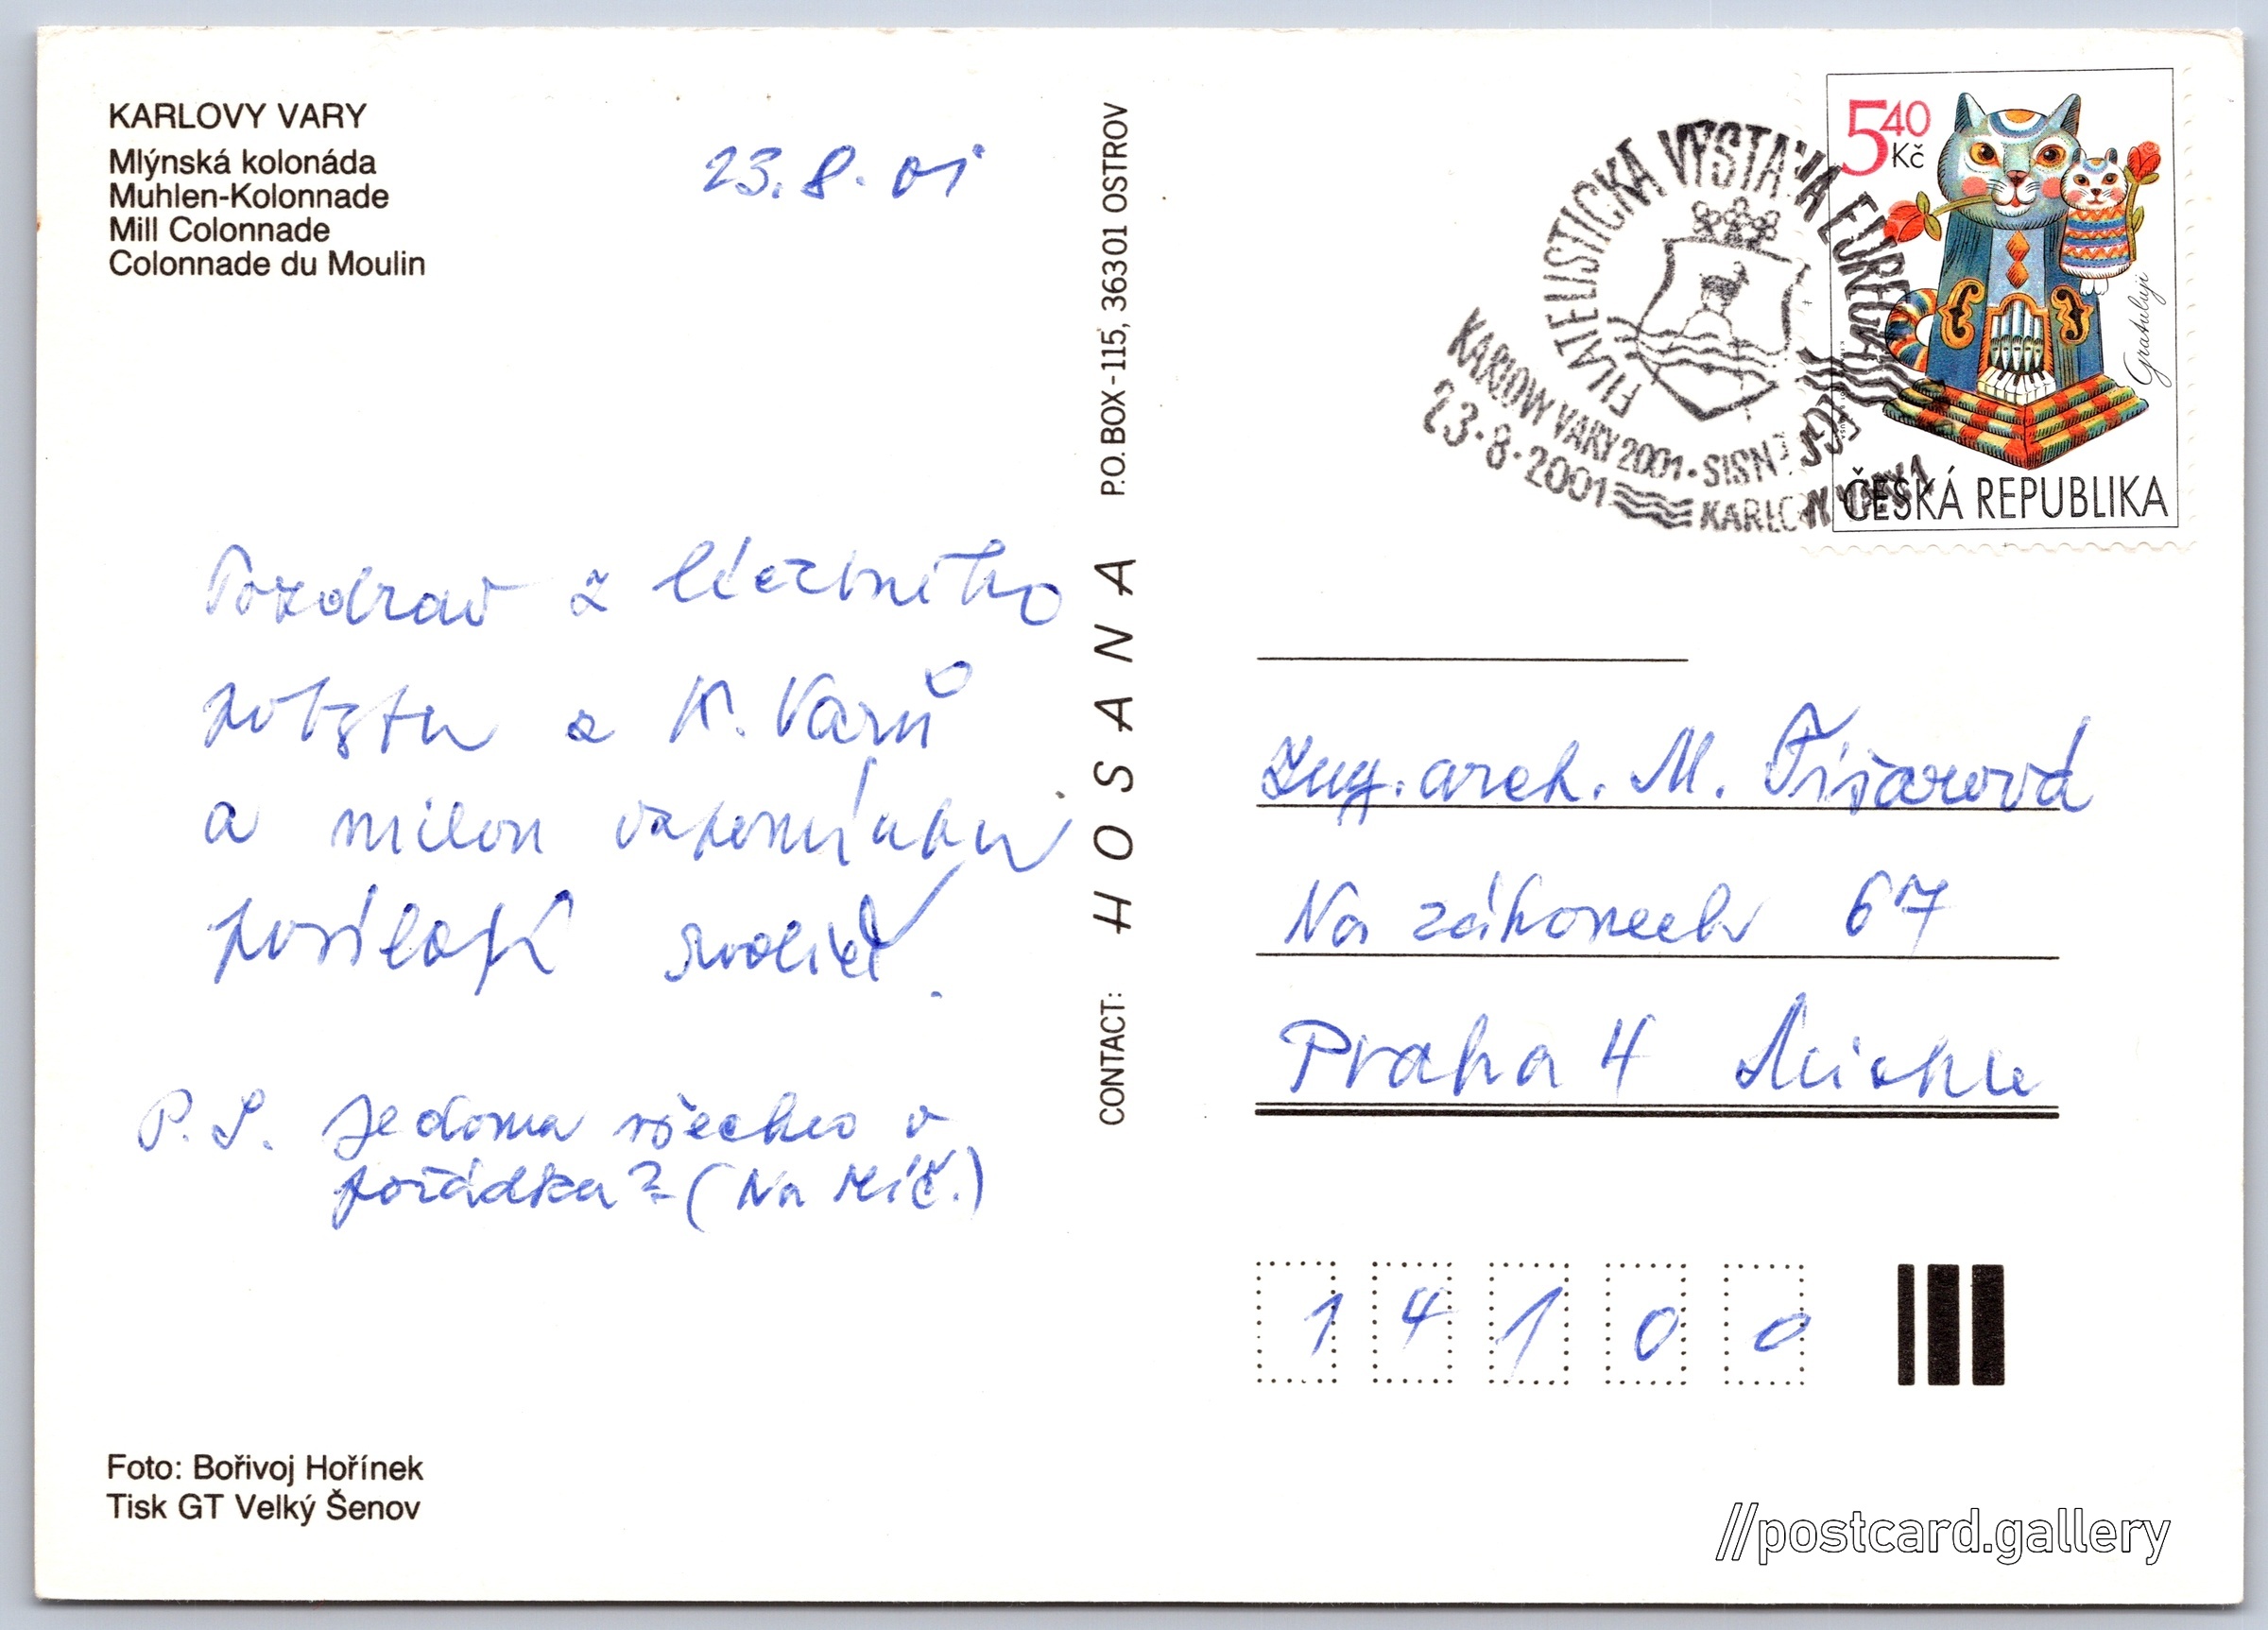 KARLOVY VARY
Mlýnská kolonáda
Muhlen-Kolonnade
Mill Colonnade
Colonnade du Moulin
23.8.01
Pozdrav z léčebného
pobytu z K. Varů
a milou vzpomínku
posílají
P.S. Je doma všechno v
pořádku? (Na Míč.)
Foto: Bořivoj Hořínek
Tisk GT Velký Šenov
CONTACT: HOSANA P.O. BOX - 115, 363 01 OSTROV
FILATELISTICKÁ VÝSTAVA
KARLOVY VARY 2001
23.8.2001 KARLOVY VARY 1
5 40
Kč
Gratuluji
ČESKÁ REPUBLIKA
Ing. arch. M. Fišarová
Na záhonech 67
Praha 4 Michle
1 4 1 0 0
//postcard.gallery